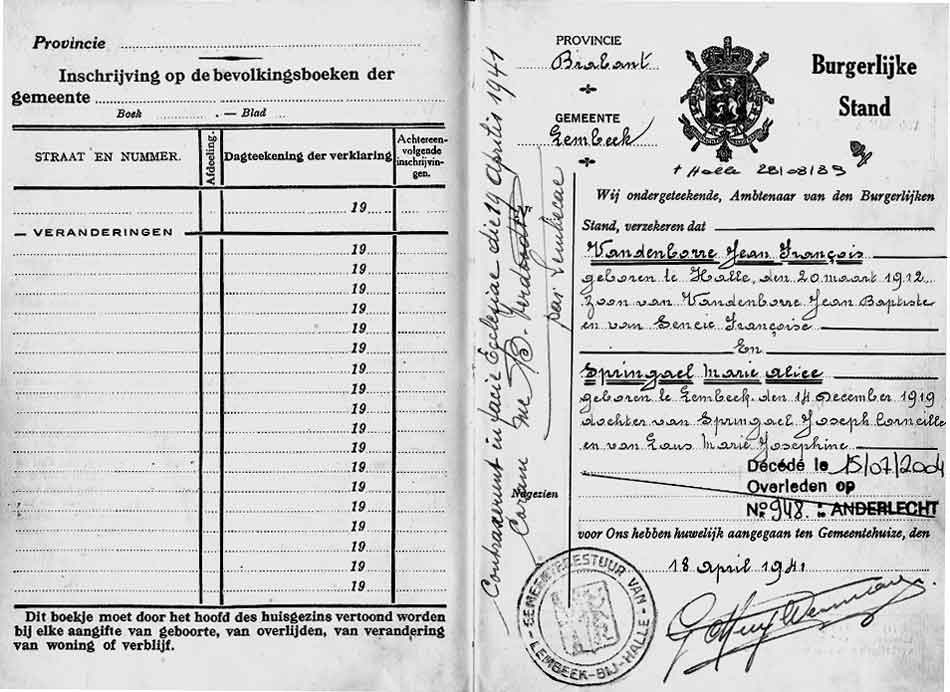 Provincie
Inschrijving op de bevolkingsboeken der
gemeente
Boek . — Blad
STRAAT EN NUMMER.
Afdeeling.
Dagteekening der verklaring
Achtereen-
volgende
inschrijvin-
gen.
19
VERANDERINGEN
19
19
19
19
19
19
19
19
19
19
19
19
19
19
19
19
19
19
Dit boekje moet door het hoofd des huisgezins vertoond worden
bij elke aangifte van geboorte, van overlijden, van verandering
van woning of verblijf.
Contraxerunt in facie Ecclesiae die 19 Aprilis 1941
Coram me
par. Lembecae
Nagezien
PROVINCIE
Brabant
GEMEENTE
Lembeek
Burgerlijke
Stand
+ Halle 28/08/89
Wij ondergeteekende, Ambtenaar van den Burgerlijken
Stand, verzekeren dat
Vandenborre Jean François
geboren te Halle, den 20 maart 1912
zoon van Vandenborre Jean Baptiste
en van Sencie Françoise
En
Springael Marie Alice
geboren te Lembeek den 14 December 1919
dochter van Springael Joseph Corneille
en van Laus Marie Josephine
Décédé le 15/07/2004
Overleden op
No 948. : ANDERLECHT
voor Ons hebben huwelijk aangegaan ten Gemeentehuize, den
18 april 1941
GEMEENTEBESTUUR VAN
LEMBEEK-BIJ-HALLE